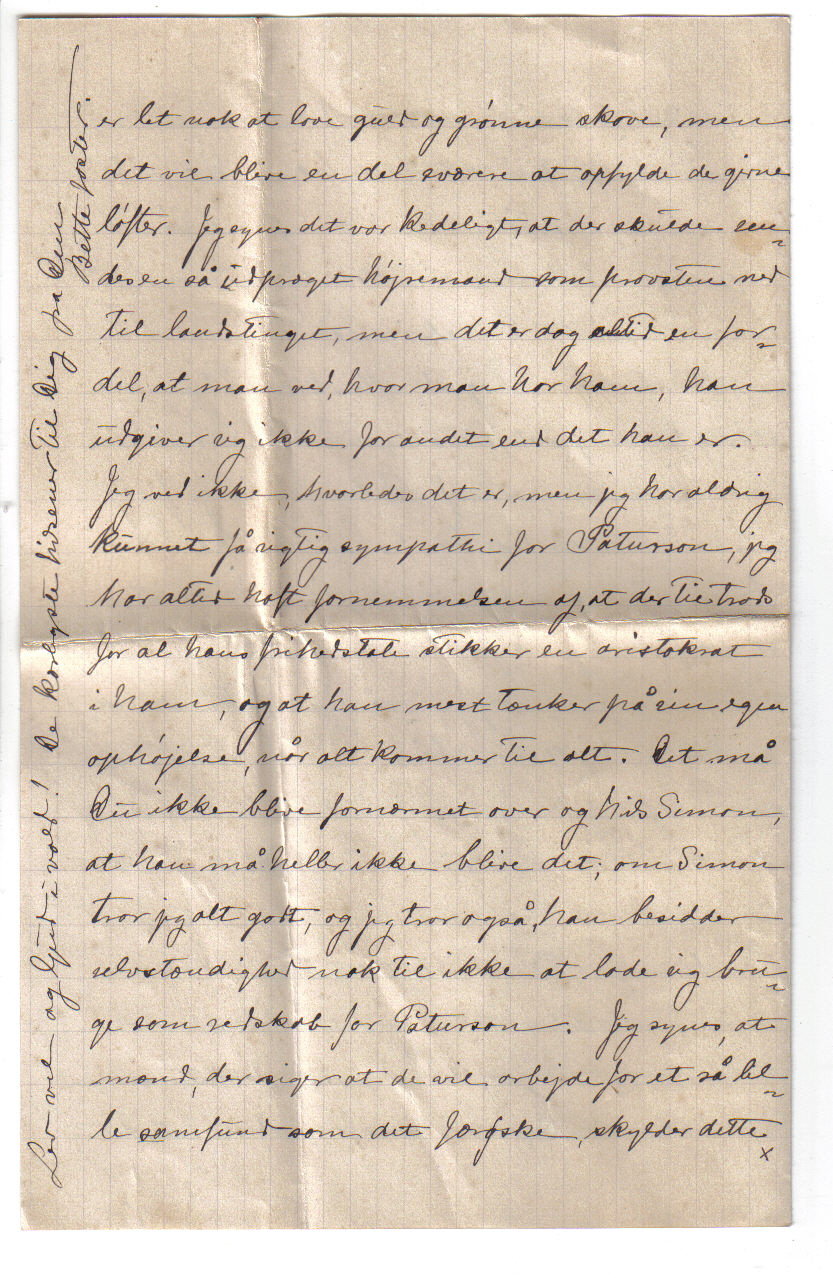 er let nok at love guld og grønne skove, men
det vil blive en del sværere at opfylde de givne
løfter. Jeg synes det var kedeligt, at der skulde sen=
des en så udpræget højremand som provsten ned
til landstinget, men det er dog altid en for=
del, at man ved, hvor man har ham, han
udgiver sig ikke for andet end det han er.
Jeg ved ikke, hvorledes det er, men jeg har aldrig
kunnet få rigtig sympathi for Patursson, jeg
har altid haft fornemmelsen af, at der til trods
for al hans frihedstale stikker en aristokrat
i ham, og at han mest tænker på sin egen
ophøjelse, når alt kommer til alt. Det må
Du ikke blive fornærmet over og hils Simon,
at han må heller ikke blive det; om Simon
tror jeg alt godt, og jeg tror også, han besidder
selvstændighed nok til ikke at lade sig bru=
ge som redskab for Patursson. Jeg synes, at
mænd, der siger at de vil arbejde for et så lil=
le samfund som det færøske, skylder dette
x
Lev vel og Gud i vold! De kærligste hilsener til Dig fra Din
Bette foster.